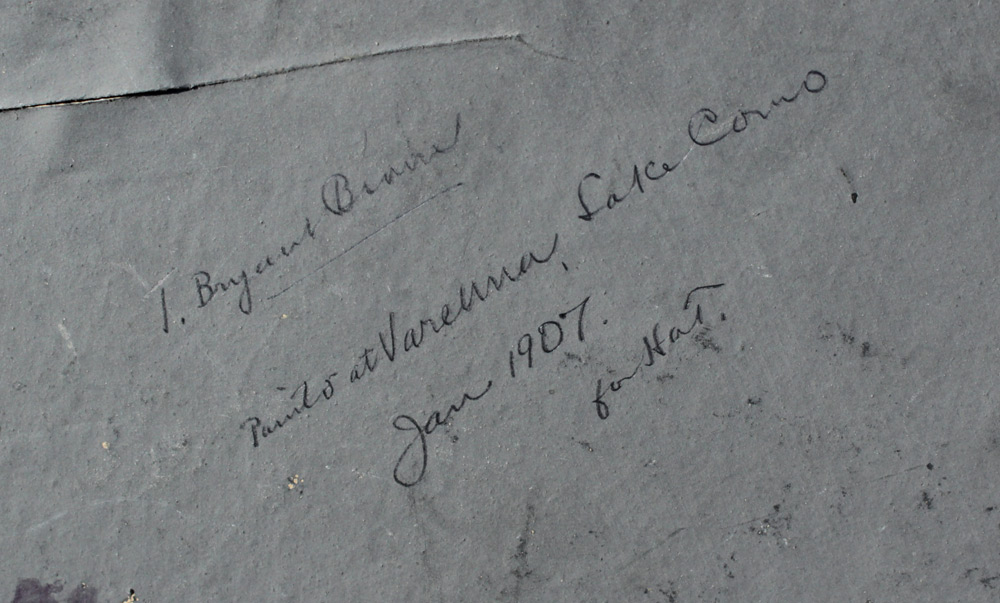 T. Bryant Brown
Painted at Varenna, Lake Como
Jan 1907.
for Hat.